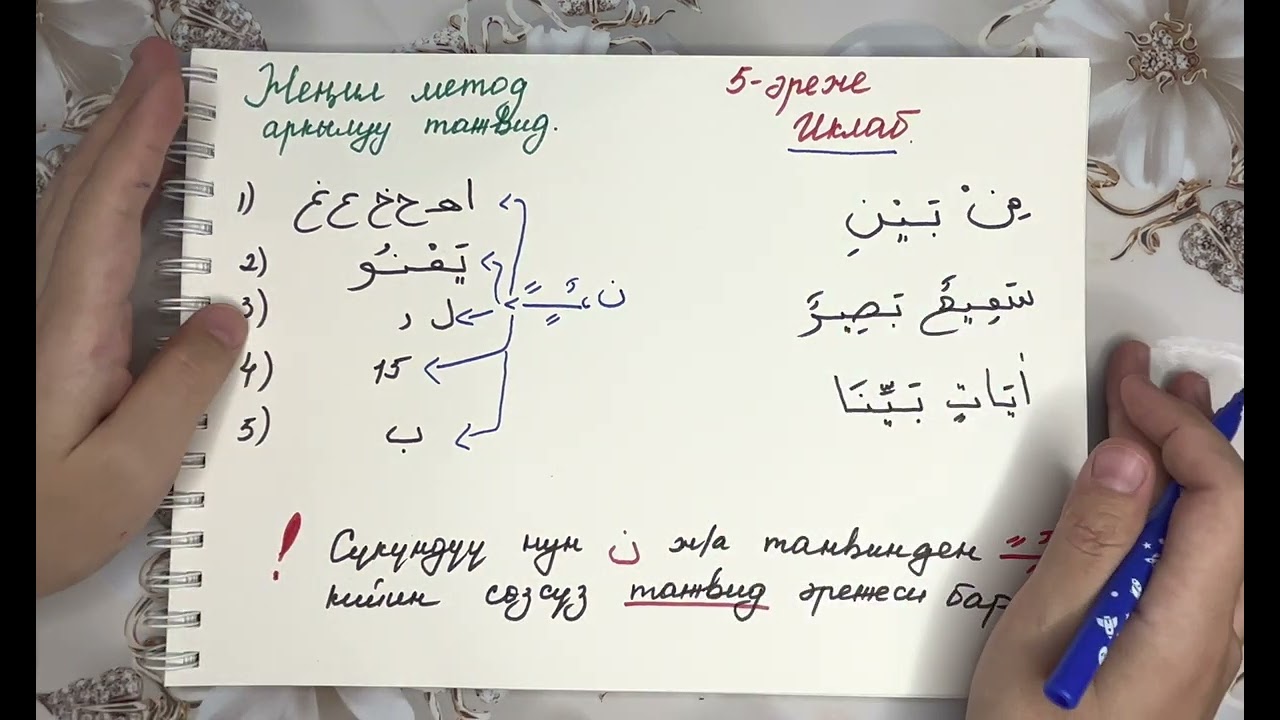 Жеңил метод
аркылуу тажвид.
5-эреже
Иклаб.
1) ا هـ ح خ ع غ
2) يَفْنُو
3) ل ر
4) 15
5) ب
ن ـًـٌـٍ
مِنْ بَيْنِ
سَمِيعٌ بَصِيرٌ
اٰيَاتٍ بَيِّنَا
! Сүкүндүү нун ن ж/а танвинден
кийин сөзсүз тажвид эрежеси бар